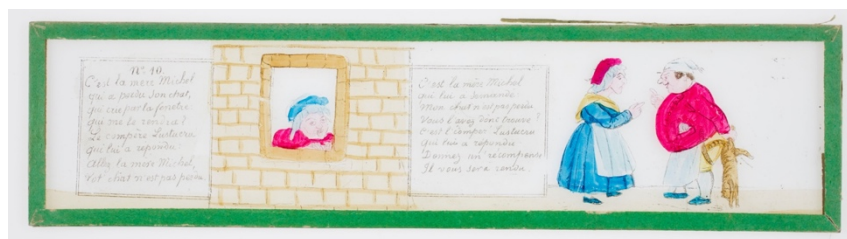 N° 10.
C'est la mère Michel
qui a perdu son chat,
qui crie par la fenêtre
qui me le rendra?
Le compère Lustucru
qui lui a répondu:
Allez la mère Michel,
vot' chat n'est pas perdu.
C'est la mère Michel
qui lui a demandé:
Mon chat n'est pas perdu
Vous l'avez donc trouvé?
c'est l'compèr' Lustucru
Qui lui a répondu
Donnez un récompense
Il vous sera rendu.